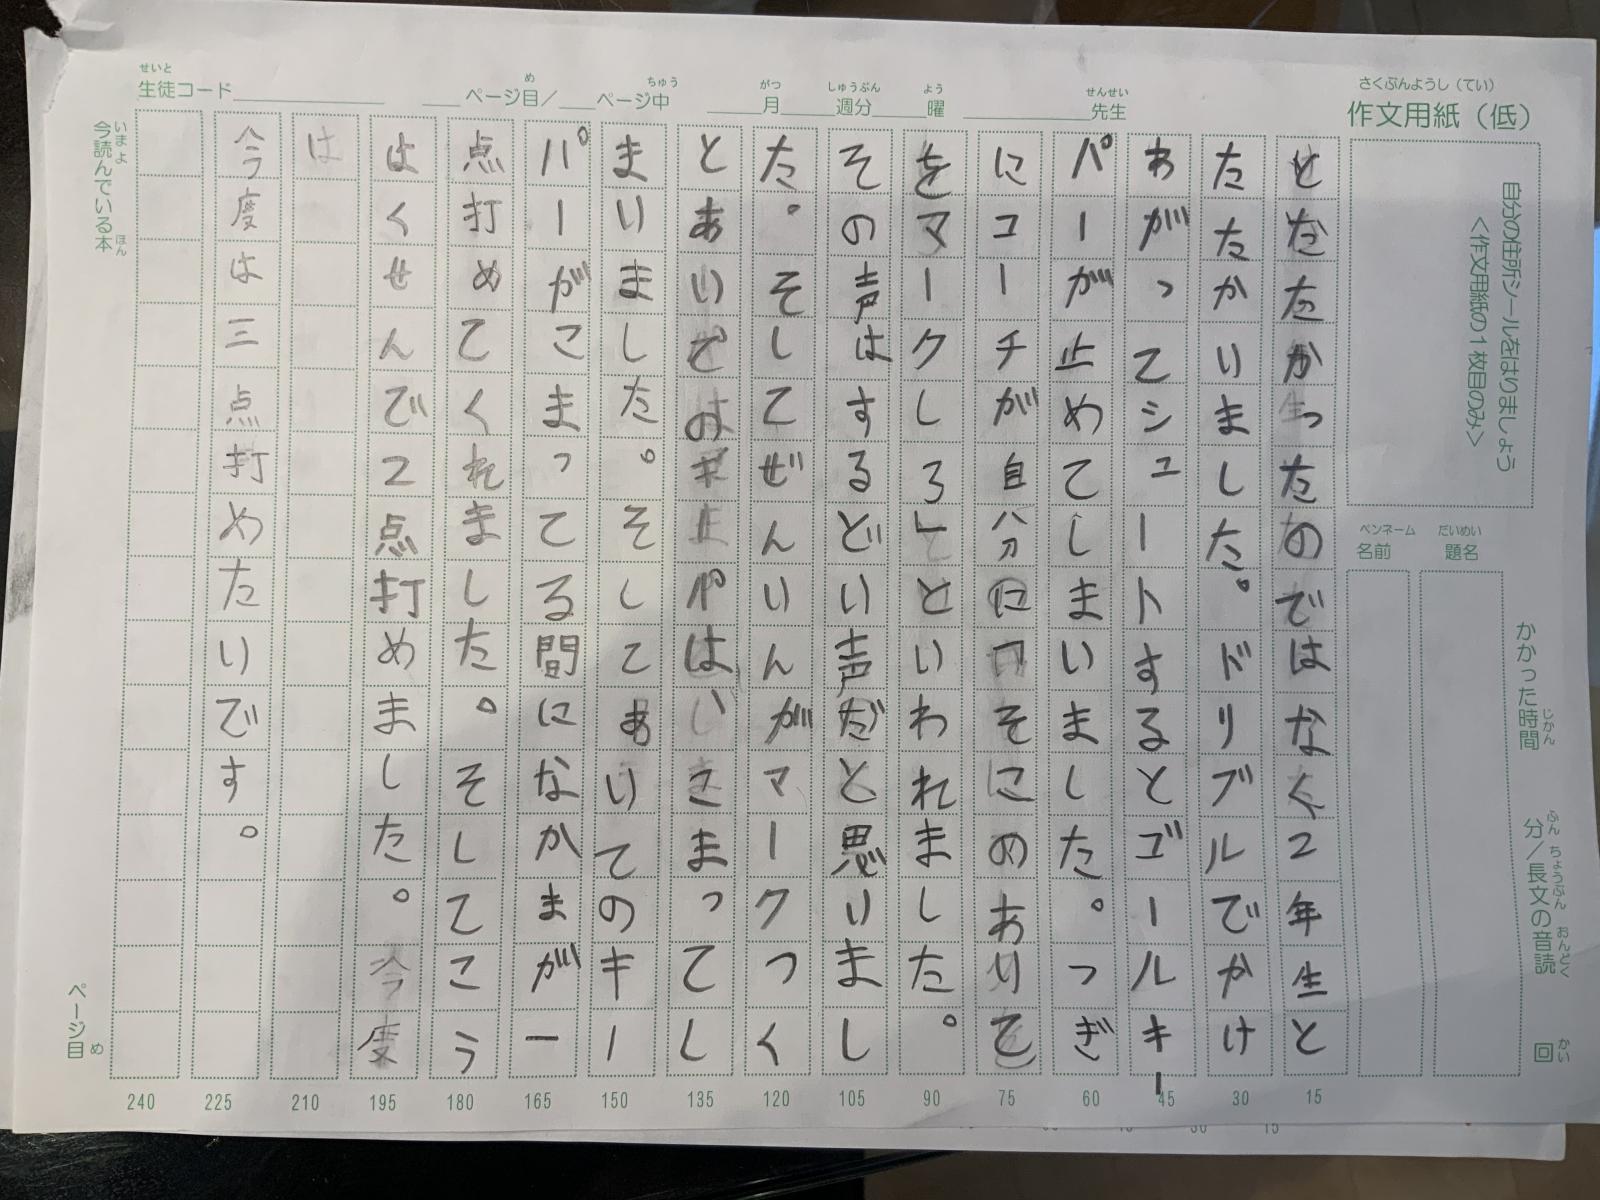 さくぶんようし（てい）
作文用紙（低）
せいと
生徒コード
め
ページ目／
ちゅう
ページ中
がつ
月
しゅうぶん
週分
よう
曜
せんせい
先生
自分の住所シールをはりましょう
＜作文用紙の１枚目のみ＞
だいめい
題名
ペンネーム
名前
かかった時間
じかん
分／長文の音読
ふん ちょうぶん おんどく
回
かい
とたたかったのではなく2年生と
たたかいました。ドリブルでかけ
あがってシュートするとゴールキー
パーが止めてしまいました。つぎ
にコーチが自分に そこのありと
をマークしろ」といわれました。
その声はするどい声だと思いまし
た。そしてぜんいんがマークつく
とあいての はいさまってし
まいました。そしてあいてのキー
パーがこまってる間になかまが一
点打めてくれました。そしてこう
はくせんで2点打めました。今度
は
今度は三点打めたいです。
いまよ ほん
今読んでいる本
ページ目
め
15
30
45
60
75
90
105
120
135
150
165
180
195
210
225
240